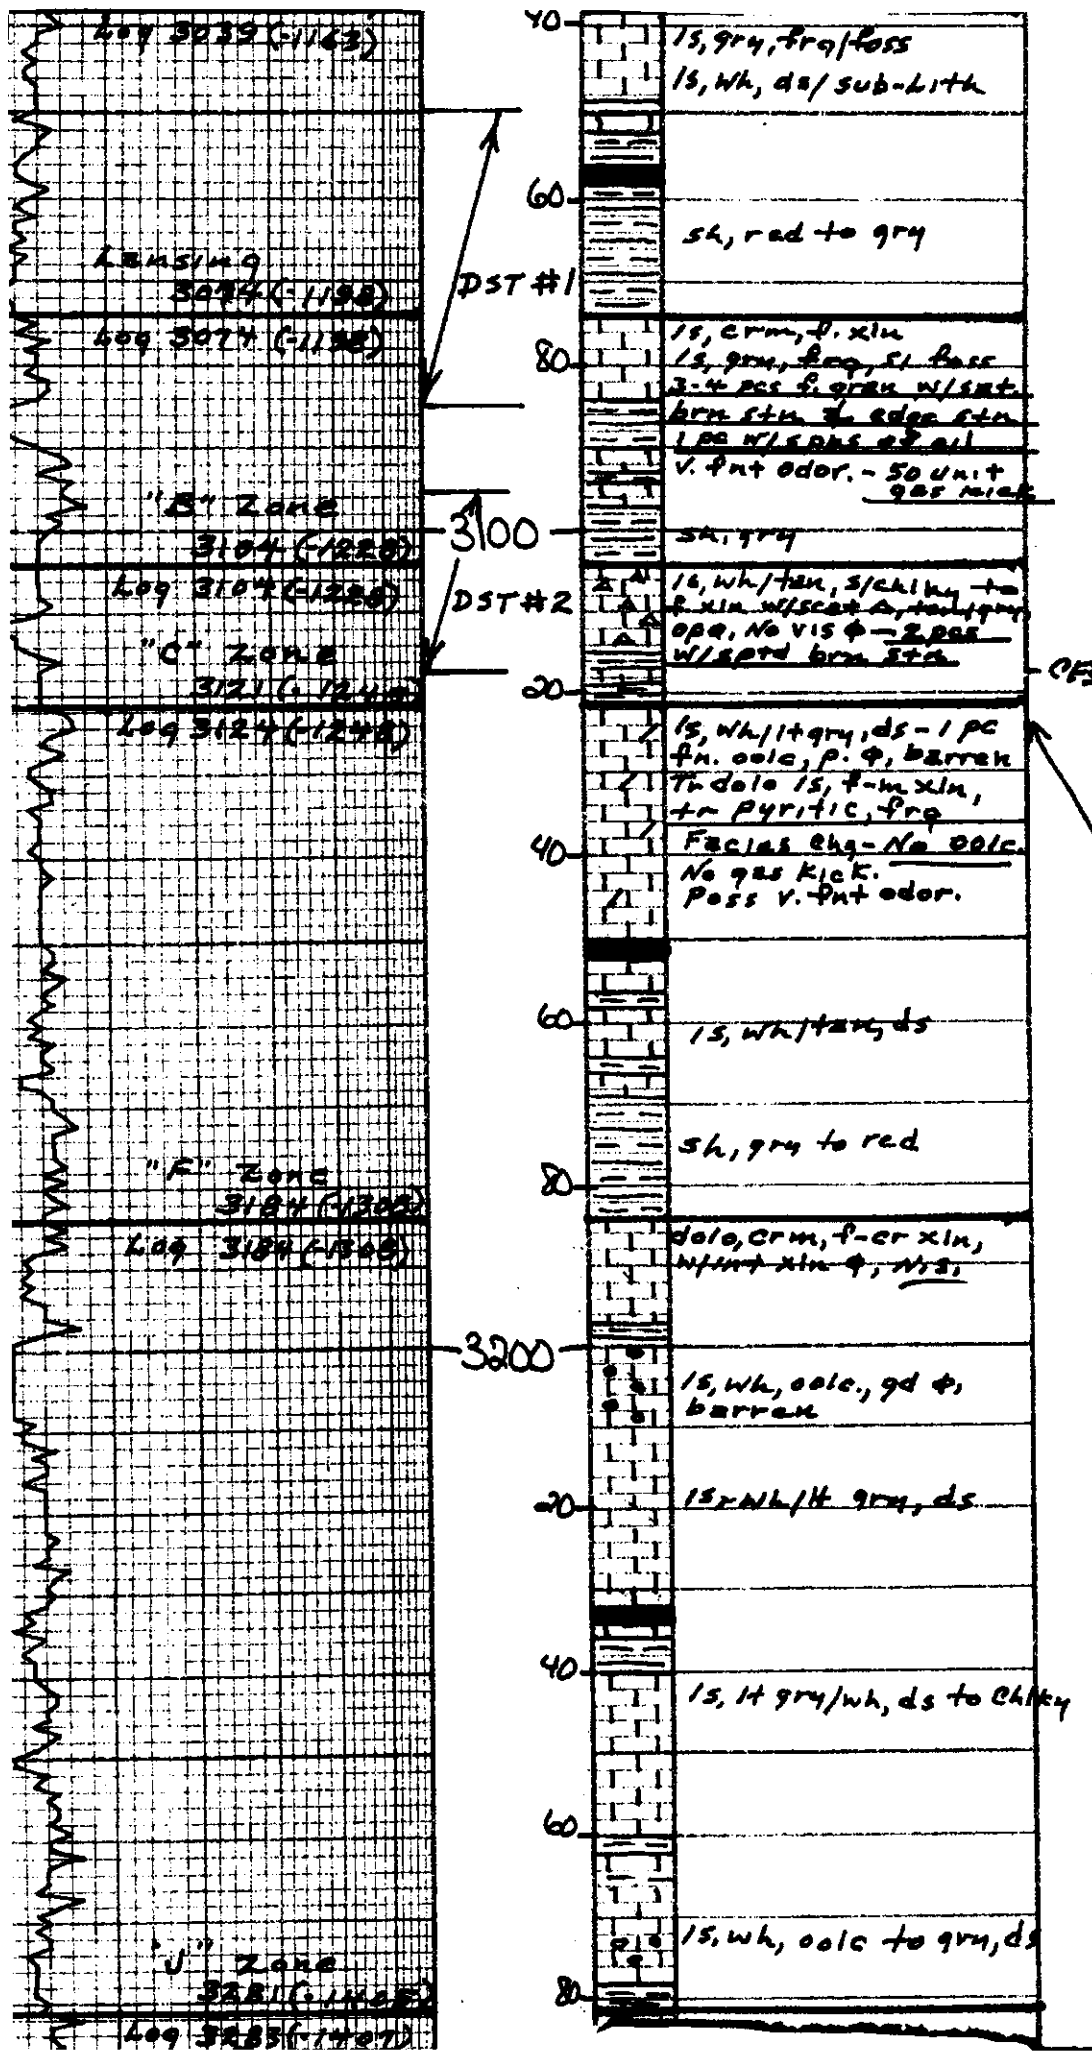 Log 3039 (-1163)
Lansing
3074 (-1198)
Log 3074 (-1198)
"B" Zone
3104 (-1228)
Log 3104 (-1228)
"C" Zone
3121
Log 3124 (-1248)
"F" Zone
3184 (-1308)
Log 3184 (-1308)
"J" Zone
3281
Log 3283 (-1407)
DST #1
3100
DST #2
3200
40
60
80
20
40
60
80
20
40
60
80
ls, gry, frg/foss
ls, wh, ds/sub-Lith
sh, red to gry
ls, crm, f. xln
ls, gry, frg, sl foss
3-4 pcs f. gran w/sat.
brn stn & edge stn
1 pc w/spks of oil
v. fnt odor. - 50 unit
gas kick
sh, gry
ls, wh/tan, s/chlky to
f. xln w/scat Δ, tan/gry,
opq, No vis φ - 2 pcs
w/sptd brn stn
CFS
ls, wh/lt gry, ds - 1 pc
fn. oolc, p. φ, barren
Tr dolo ls, f-m xln,
tr pyritic, frg
Facies chg - No oolc.
No gas kick.
Poss v. fnt odor.
ls, wh/tan, ds
sh, gry to red
dolo, crm, f-cr xln,
w/int xln φ, N.S.
ls, wh, oolc., gd φ,
barren
ls, wh/lt gry, ds
ls, lt gry/wh, ds to Chlky
ls, wh, oolc to gry, ds